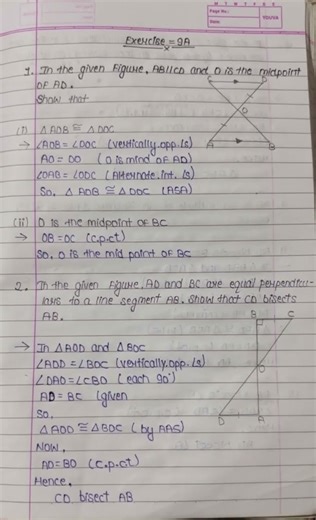 M T W T F S S
Page No.:
Date:
YOUVA
Exercise = 9A
1. In the given figure, AB||CD and O is the midpoint
OF AD.
Show that
C
D
O
A
B
(i) △AOB ≅ △DOC
→ ∠AOB = ∠DOC (vertically.opp.∠s)
AO = DO (O is mind OF AD)
∠OAB = ∠ODC (Alternate.int.∠s)
So, △ AOB ≅ △ DOC (ASA)
(ii) O is the midpoint OF BC.
→ OB = OC (c.p.ct)
So, O is the mid point OF BC
2. In the given figure, AD and BC are equal perpendicu-
lars to a line segment AB. Show that CD bisects
AB.
B
C
O
D
A
→ In △AOD and △BOC
∠AOD = ∠BOC (vertically.opp.∠s)
∠DAO = ∠CBO (each 90°)
AD = BC (given
So,
△AOD ≅ △BOC (by AAS)
NOW,
AO = BO (C.p.ct)
Hence,
CD bisect AB